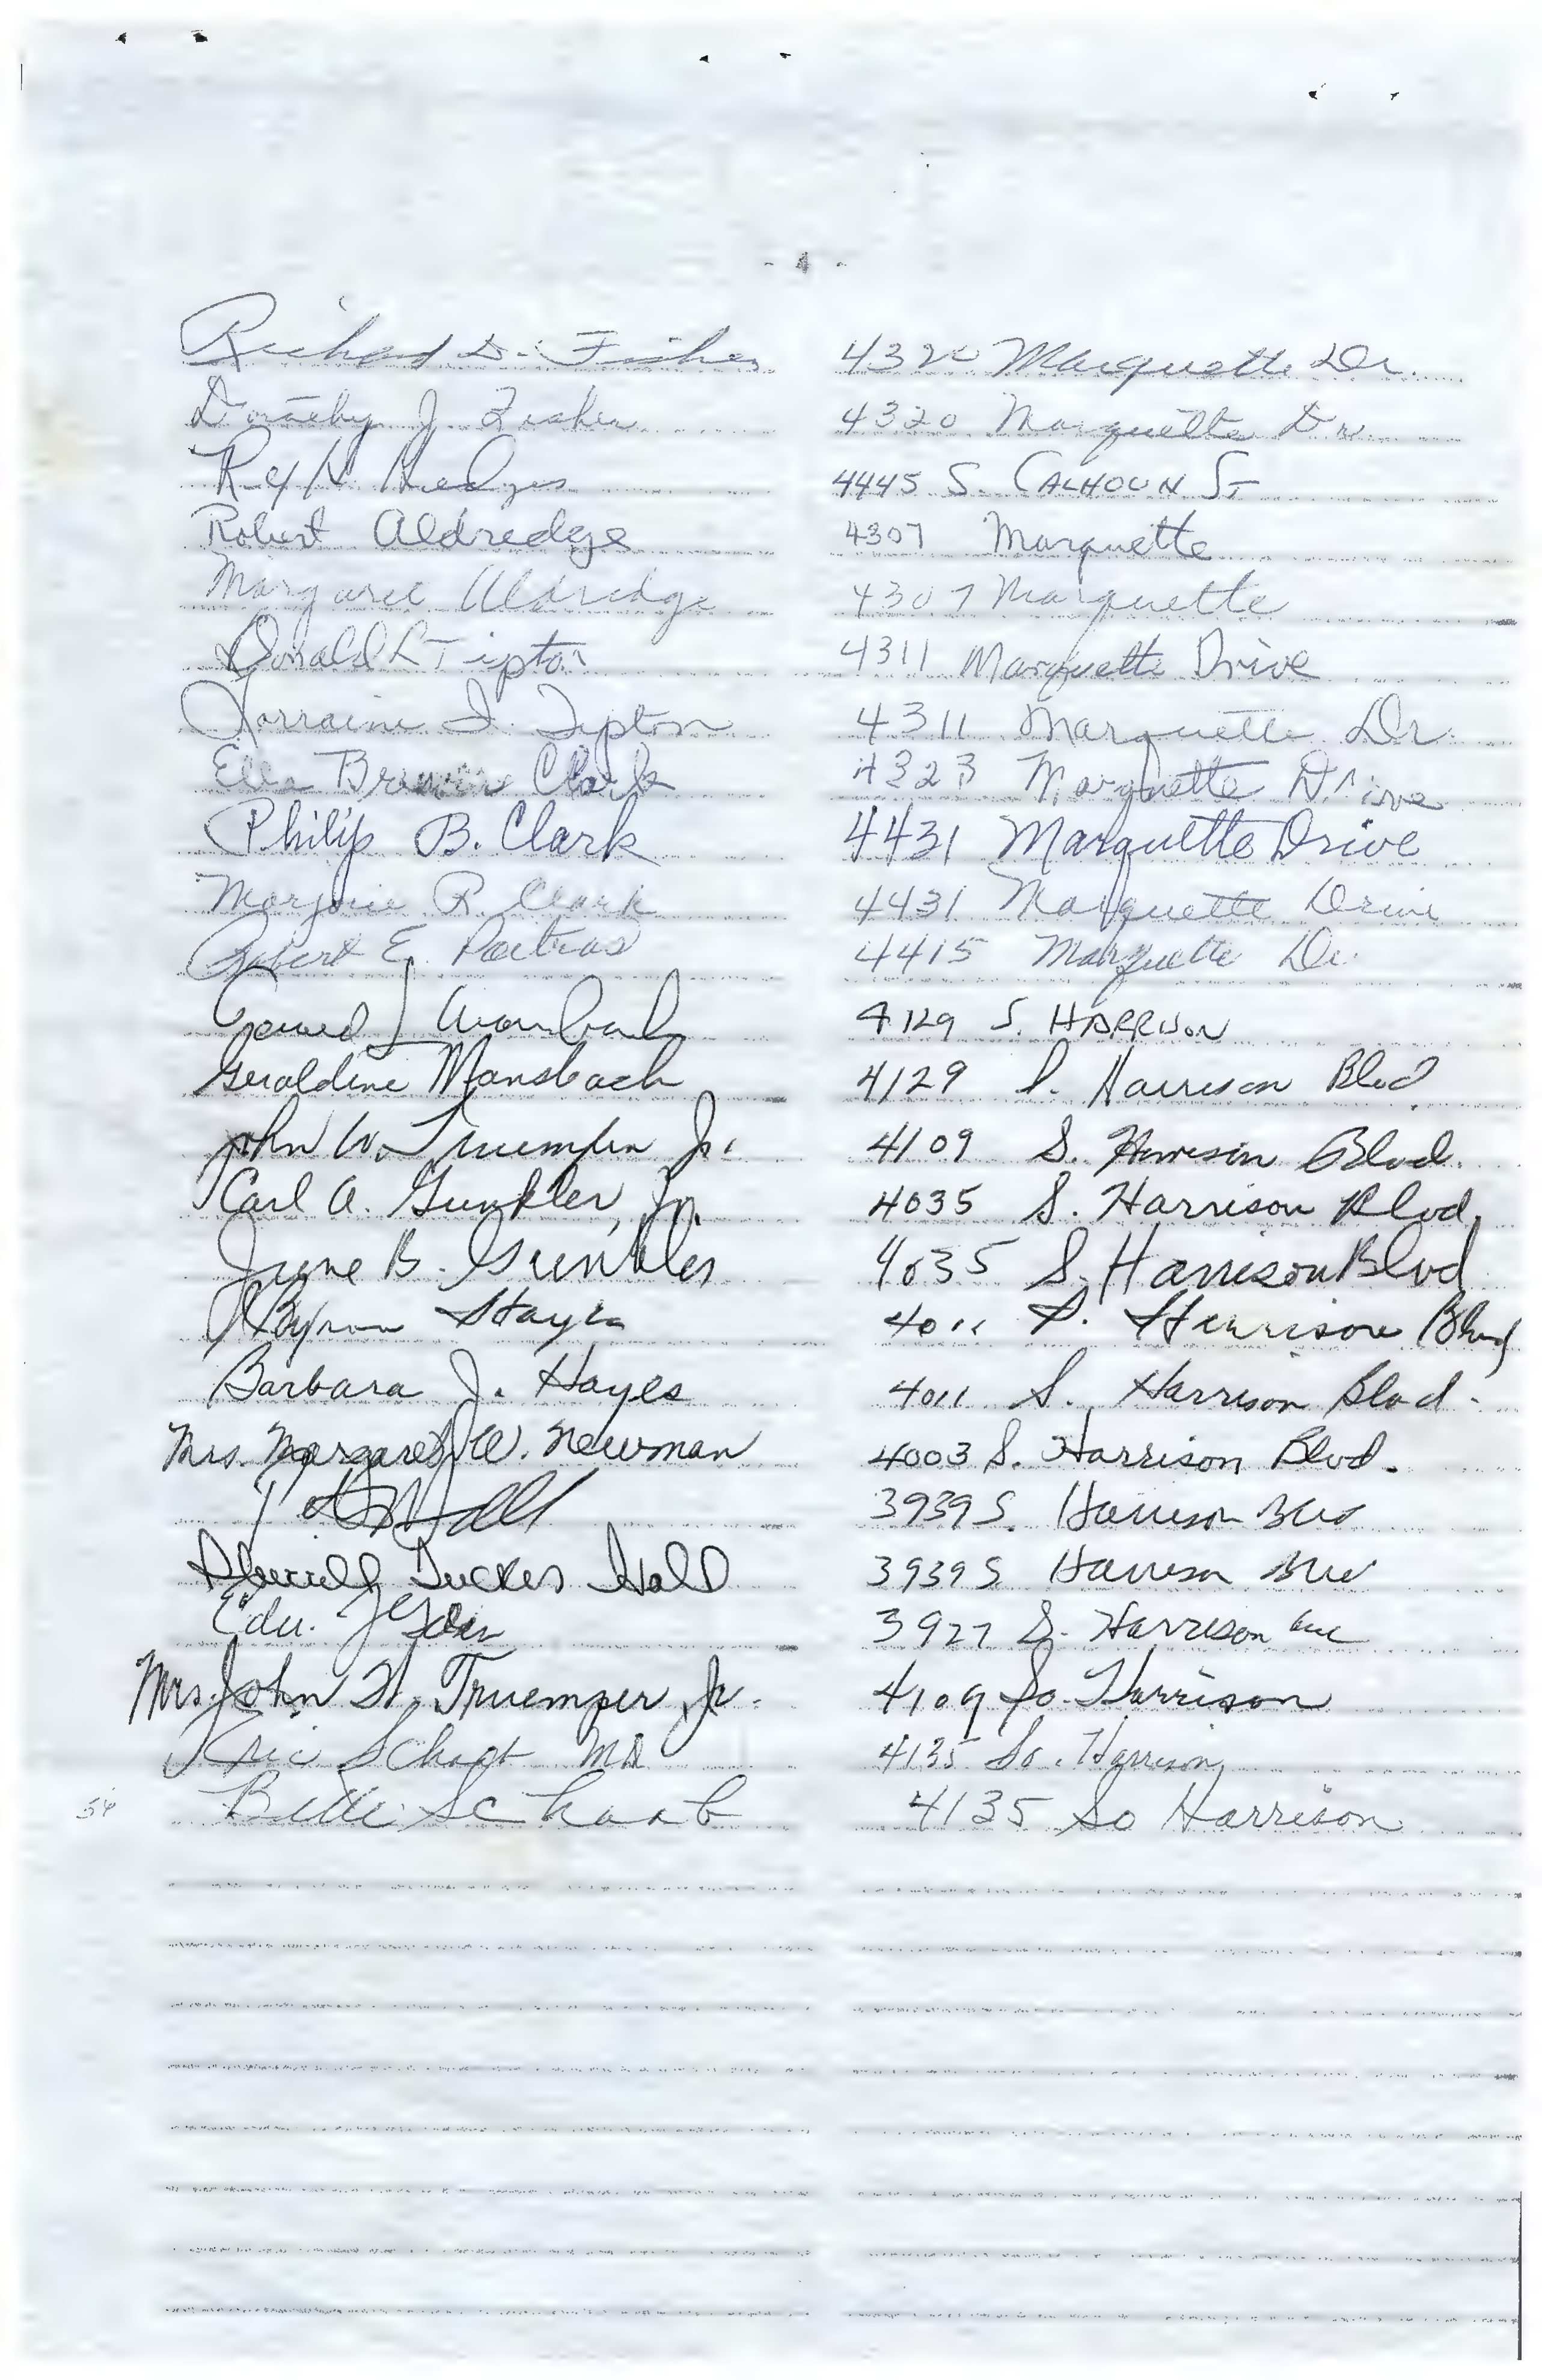 - 4 -
Richard D. Fisher 4320 Marquette Dr.
Dorothy J. Fisher 4320 Marquette Dr.
Hedges 4445 S. CALHOUN ST
Robert Aldredge 4307 Marquette
Margaret Aldredge 4307 Marquette
Donald L Tipton 4311 Marquette Drive
Lorraine I. Tipton 4311 Marquette Dr.
Ella Clark 4323 Marquette Drive
Philip B. Clark 4431 Marquette Drive
Marjorie R. Clark 4431 Marquette Drive
Robert E. Poitras 4415 Marquette Dr.
4129 S. HARRISON
Geraldine Mansbach 4129 S. Harrison Blvd
John W. Truemper Jr. 4109 S. Harrison Blvd.
Carl A. Gunkler, Jr. 4035 S. Harrison Blvd.
June B. Gunkler 4035 S. Harrison Blvd
Byron Hayes 4011 S. Harrison Blvd
Barbara J. Hayes 4011 S. Harrison Blvd.
Mrs. Margaret W. Newman 4003 S. Harrison Blvd.
Hall 3939 S. Harrison Blvd
Tucker Hall 3939 S Harrison Blvd
Edw. 3927 S. Harrison Ave
Mrs. John W. Truemper, Jr. 4109 So. Harrison
MD 4135 So. Harrison
54 Schaab 4135 So Harrison